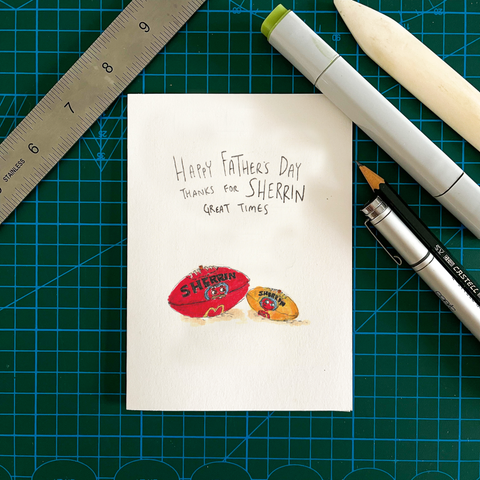 9
8
7
6
STAINLESS
HAPPY FATHER'S DAY
THANKS FOR SHERRIN
GREAT TIMES
SHERRIN
SHERRIN